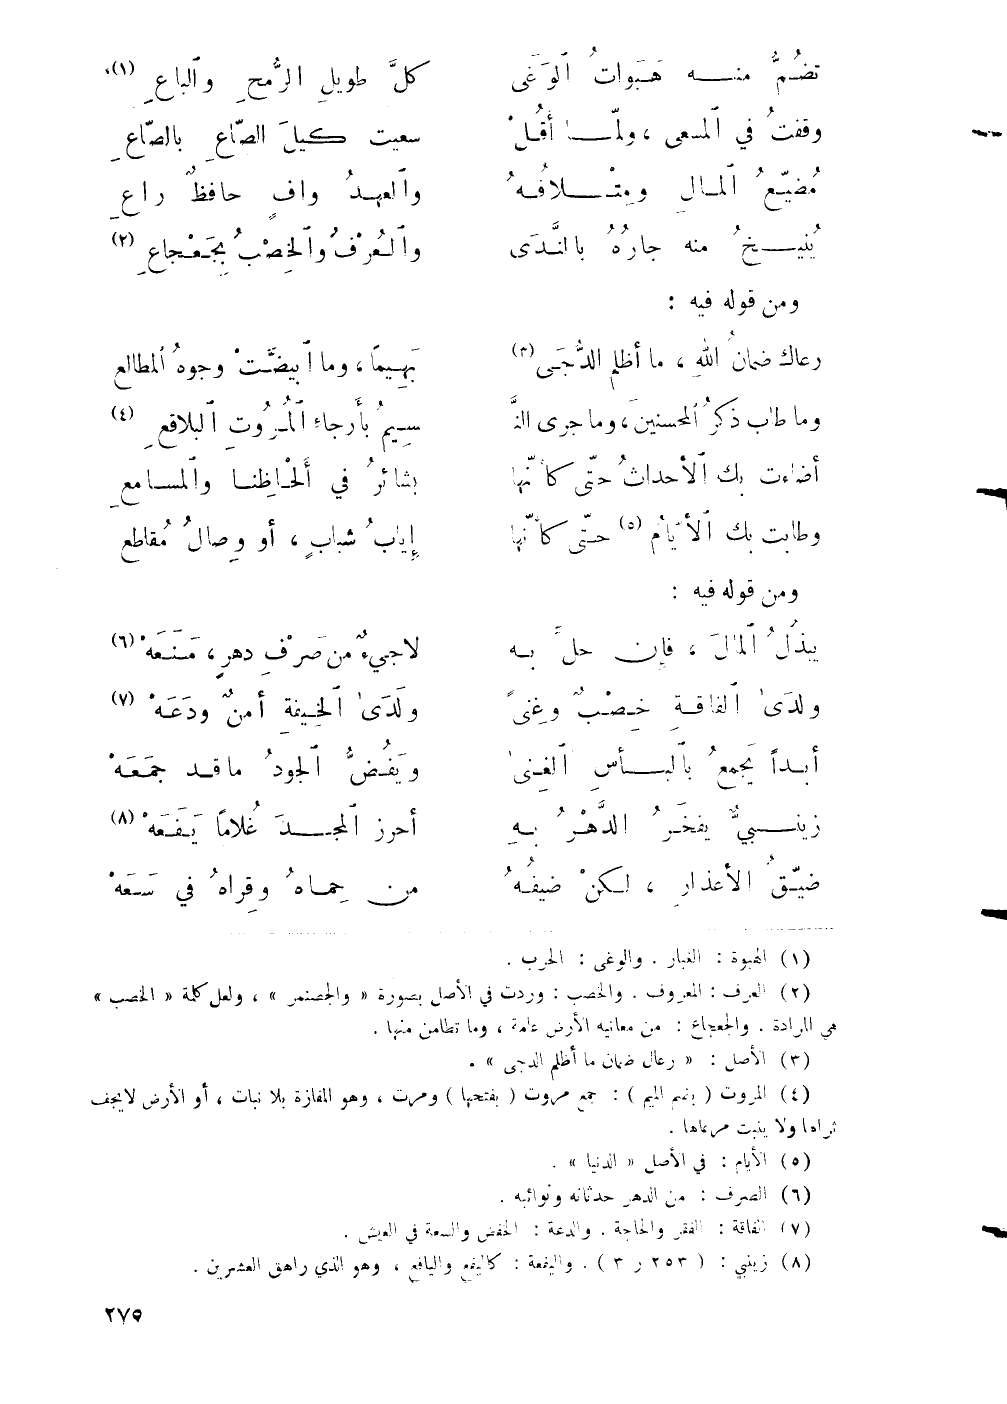 تضُمُّ منه هَبَواتُ ٱلوَغَى كلَّ طويلِ الرُّمحِ وٱلباعِ (١)
وقفتُ في ٱلمسعى ، ولمّا أَقُلْ سعيت كيلَ الصّاعِ بالصّاعِ
مُضيّعُ ٱلمالِ ومِتْلافُهُ وٱلعهدُ وافٍ حافظٌ راعِ
يُنيخُ منه جارُهُ بالنَّدَى وٱلعُرْفُ وٱلخِصْبُ بِجَعْجاعِ (٢)
ومن قوله فيه :
رعاك ضمانُ اللهِ ، ما أظلم الدُّجَى (٣) بَهِيمًا ، وما ٱبيضَّتْ وجوهُ ٱلمطالع
وما طاب ذكرُ ٱلمحسنين ، وما جرى النَّ سيمُ بأَرجاءِ ٱلمُرُوتِ ٱلبلاقعِ (٤)
أضاءت بك ٱلأحداثُ حتّى كأنّها بشائرُ في أَلحْاظِنا وٱلمسامعِ
وطابت بك ٱلأيّامُ (٥) حتّى كأنّها إيابُ شبابٍ ، أو وِصالُ مُقاطع
ومن قوله فيه :
يبذُلُ ٱلمالَ ، فإن حلَّ به لاجيءٌ من صَرْفِ دهرٍ ، مَنَعَهْ (٦)
ولدَى ٱلفاقةِ خِصْبٌ وغنىً ولَدَى ٱلخِيفةِ أمنٌ ودَعَهْ (٧)
أبداً يَجمعُ بٱلبأسِ ٱلغِنىٰ ويَفُضُّ ٱلجودُ ما قد جمَعَهْ
زينبيٌّ يفخَرُ الدَّهْرُ بهِ أحرز ٱلمجدَ غُلامًا يَفَعَهْ (٨)
ضيّقُ الأعذارِ ، لكنْ ضيفُهُ من حِماهُ وقِراهُ في سَعَهْ
(١) الهبوة : الغبار . والوغى : الحرب .
(٢) العرف : المعروف . والخصب : وردت في الأصل بصورة « والجصنمر » ، ولعل كلمة « الخصب »
هي المرادة . والجعجاع : من معانيه الأرض عامة ، وما تطامن منها .
(٣) الأصل : « رعال ضمان ما أظلم الدجى » .
(٤) المروت ( بضم الميم ) : جمع مروت ( بفتحها ) ومرت ، وهو المفازة بلا نبات ، أو الأرض لايجف
ثراها ولا ينبت مرعاها .
(٥) الأيام : في الأصل « الدنيا » .
(٦) الصرف : من الدهر حدثانه ونوائبه .
(٧) الفاقة : الفقر والحاجة . والدعة : الخفض والسعة في العيش .
(٨) زينبي : ( ٢٥٣ ر ٣ ) . واليفعة : كاليفع واليافع ، وهو الذي راهق العشرين .
٢٧٥